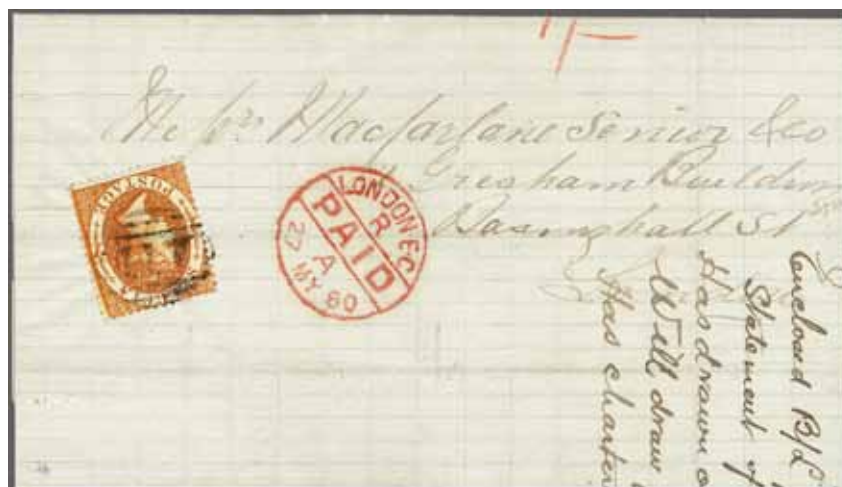 1/-
Macfarlane Senior & Co
Gresham Buildin
Basinghall St
POSTAGE
LONDON. E.C
R
PAID
A
27 MY 80
Enclosed B/L
Statement of
Has drawn o
Will draw
Has charter